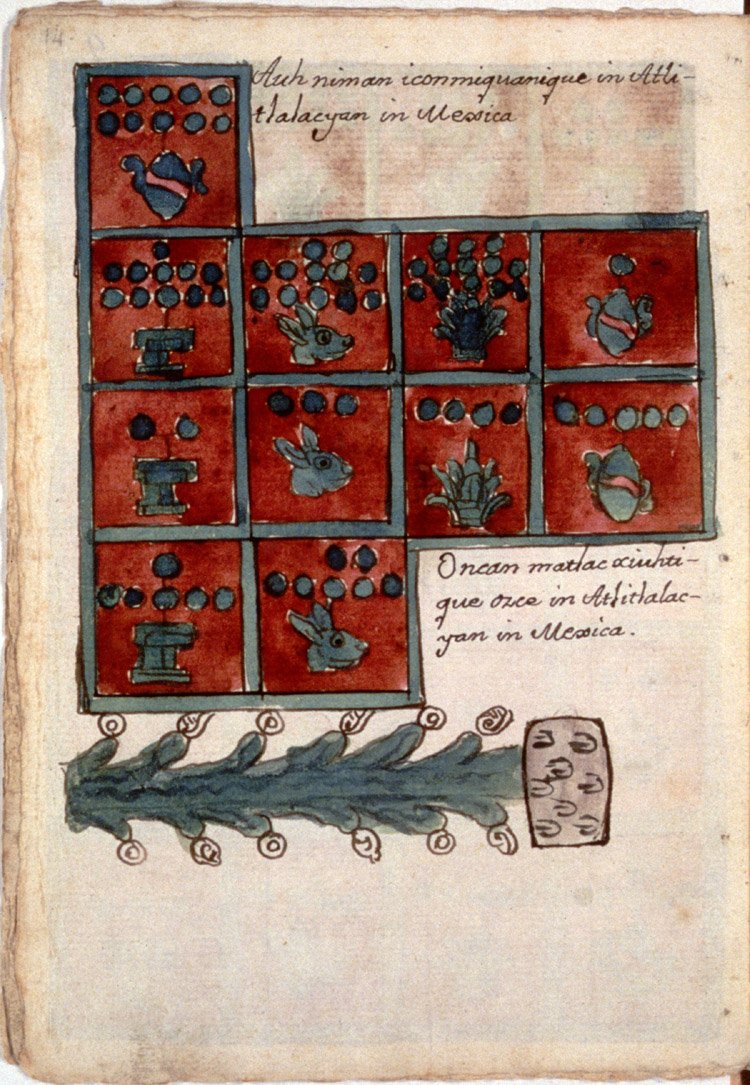 14.
Auh niman iconmiquanique in Atli-
tlalacyan in Mexica
Oncan matlac xiuhti-
que ozce in Atlitlalac-
yan in Mexica.